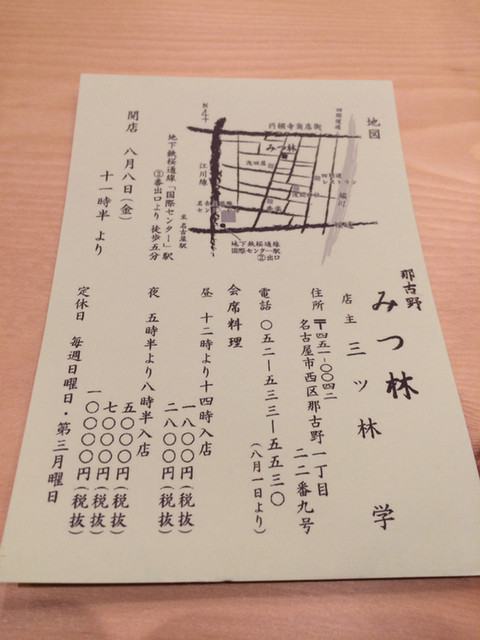 地図
四間道
円頓寺商店街
みつ林
浅田屋
堀川
江川線
至名古屋駅
地下鉄桜通線
国際センター駅
②出口
地下鉄桜通線「国際センター」駅
②番出口より 徒歩五分
開店 八月八日(金)
十一時半 より
那古野
みつ林
店主 三ツ林 学
住所 〒四五一-〇〇四二
名古屋市西区那古野一丁目
二二番九号
電話 〇五二-五三三-五五三〇
(八月一日より)
会席料理
昼 十二時より十四時入店
一八〇〇円(税抜)
二八〇〇円(税抜)
夜 五時半より八時半入店
五〇〇〇円(税抜)
七〇〇〇円(税抜)
一〇〇〇〇円(税抜)
定休日 毎週日曜日・第三月曜日